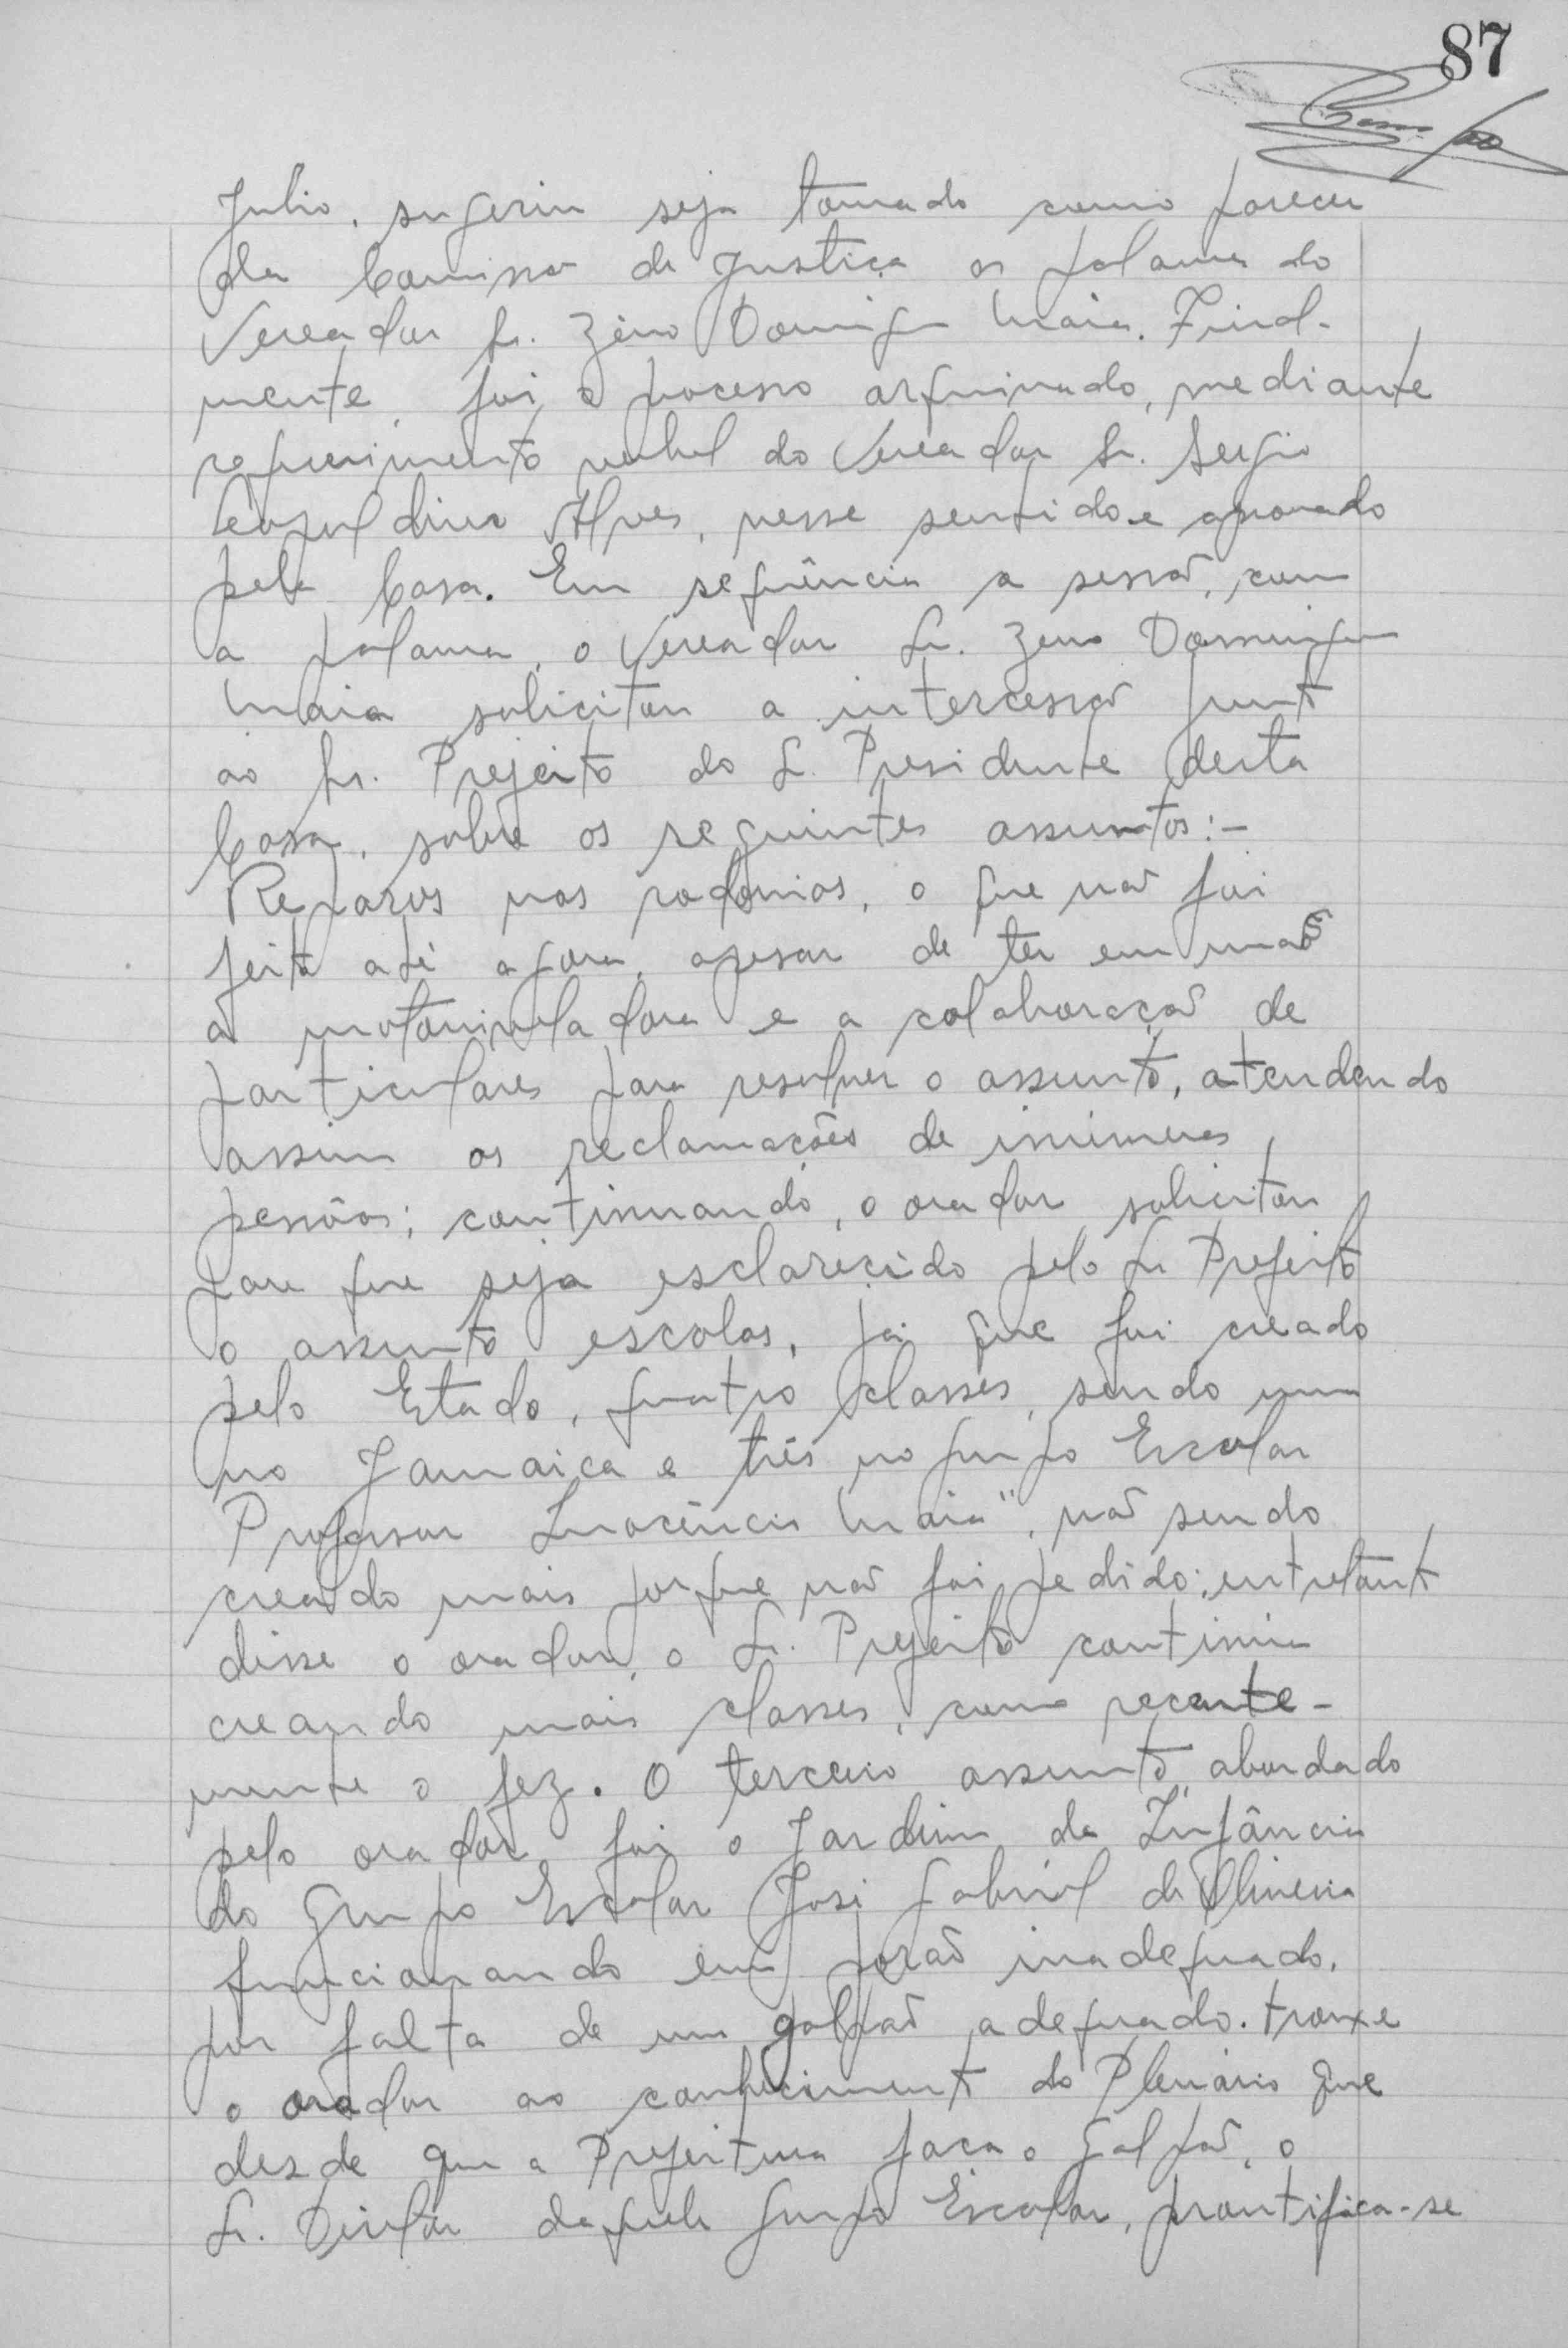 87
Julio, sugeriu seja tomado como parecer
da Comissão de Justiça as palavras do
Vereador Sr. Zeno Domingos Maia. Final-
mente, foi o processo arquivado, mediante
requerimento verbal do Vereador Sr. Sergio
Leopoldino Alves, nesse sentido e aprovado
pela Casa. Em seqüência a sessão, com
a palavra, o Vereador Sr. Zeno Domingos
Maia solicitou a intercessão junto
ao Sr. Prefeito do Sr. Presidente desta
Casa, sobre os seguintes assuntos:-
Reparos nas rodovias, o que não foi
feito até agora, apesar de ter em mãos
a motoniveladora e a colaboração de
particulares para resolver o assunto, atendendo
assim as reclamações de inúmeras
pessôas; continuando, o orador solicitou
para que seja esclarecido pelo Sr. Prefeito
o assunto escolas, já que foi creado
pelo Estado, quatro classes, sendo uma
no Jamaica e três no grupo Escolar
Professor Inocêncio Maia", não sendo
creado mais porque não foi pedido; entretanto
disse o orador, o Sr. Prefeito continua
creando mais classes, como recente-
mente o fez. O terceiro assunto abordado
pelo orador foi o Jardim da Infância
do Grupo Escolar José Gabriel de Oliveira
funcionando em porão inadequado,
por falta de um galpão adequado. trouxe
o orador ao conhecimento do Plenário que
desde que a Prefeitura faça o galpão, o
Sr. Diretor daquele Grupo Escolar, prontifica-se